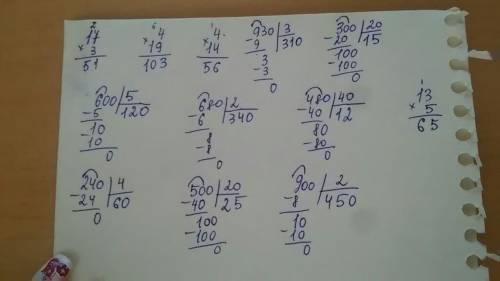 2
17
× 3
51
6
4
× 19
103
4
× 14
56
930 | 3
- 9 | 310
3
- 3
0
300 | 20
- 20 | 15
100
- 100
0
600 | 5
- 5 | 120
- 10
10
0
680 | 2
- 6 | 340
8
- 8
0
480 | 40
- 40 | 12
80
- 80
0
1
13
× 5
65
240 | 4
- 24 | 60
0
500 | 20
- 40 | 25
100
- 100
0
900 | 2
- 8 | 450
10
- 10
0